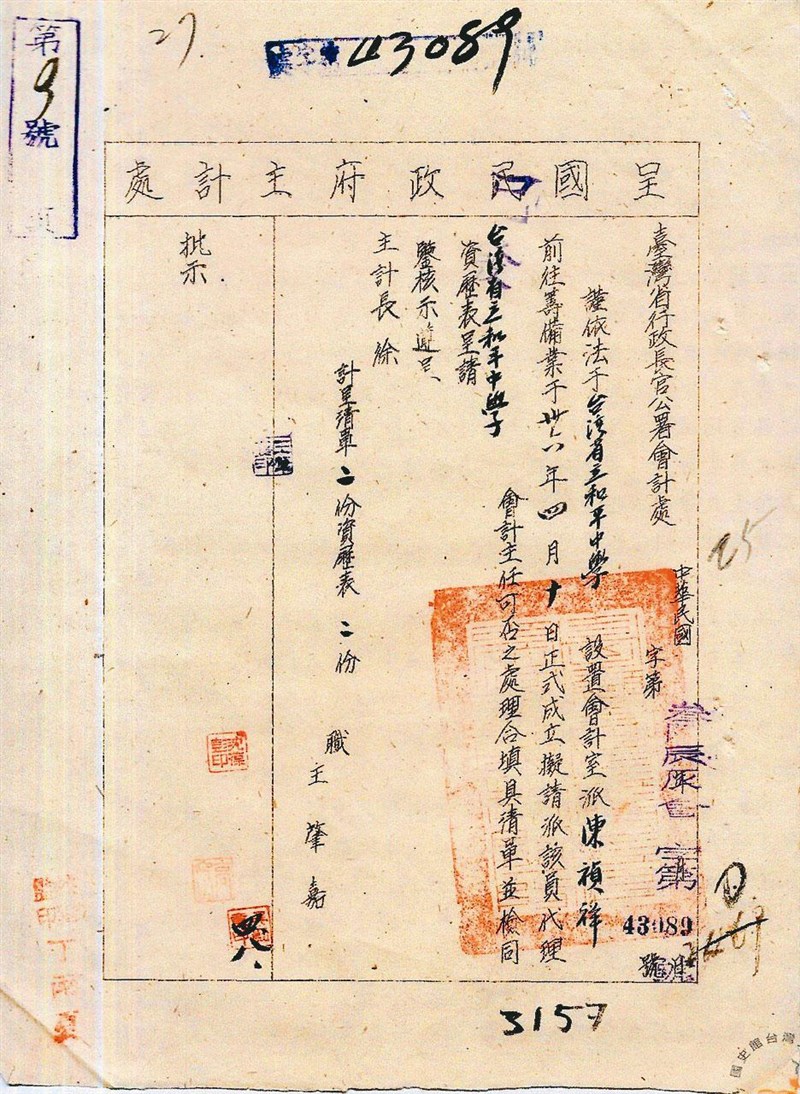 第9號
27
43089
呈國民政府主計處
臺灣省行政長官公署會計處
中華民國
字第
43089
號
謹依法于台湾省立和平中學 設置會計室派陳禎祥
前往籌備業于卅六年四月十日正式成立擬請派該員代理
台湾省立和平中學 會計主任可否之處理合填具清單並檢同
資歷表呈請
鑒核示遵呈
主計長 徐
計呈清單二份資歷表二份
職 主 肇嘉
批示
25
四八
3157
國史館台灣